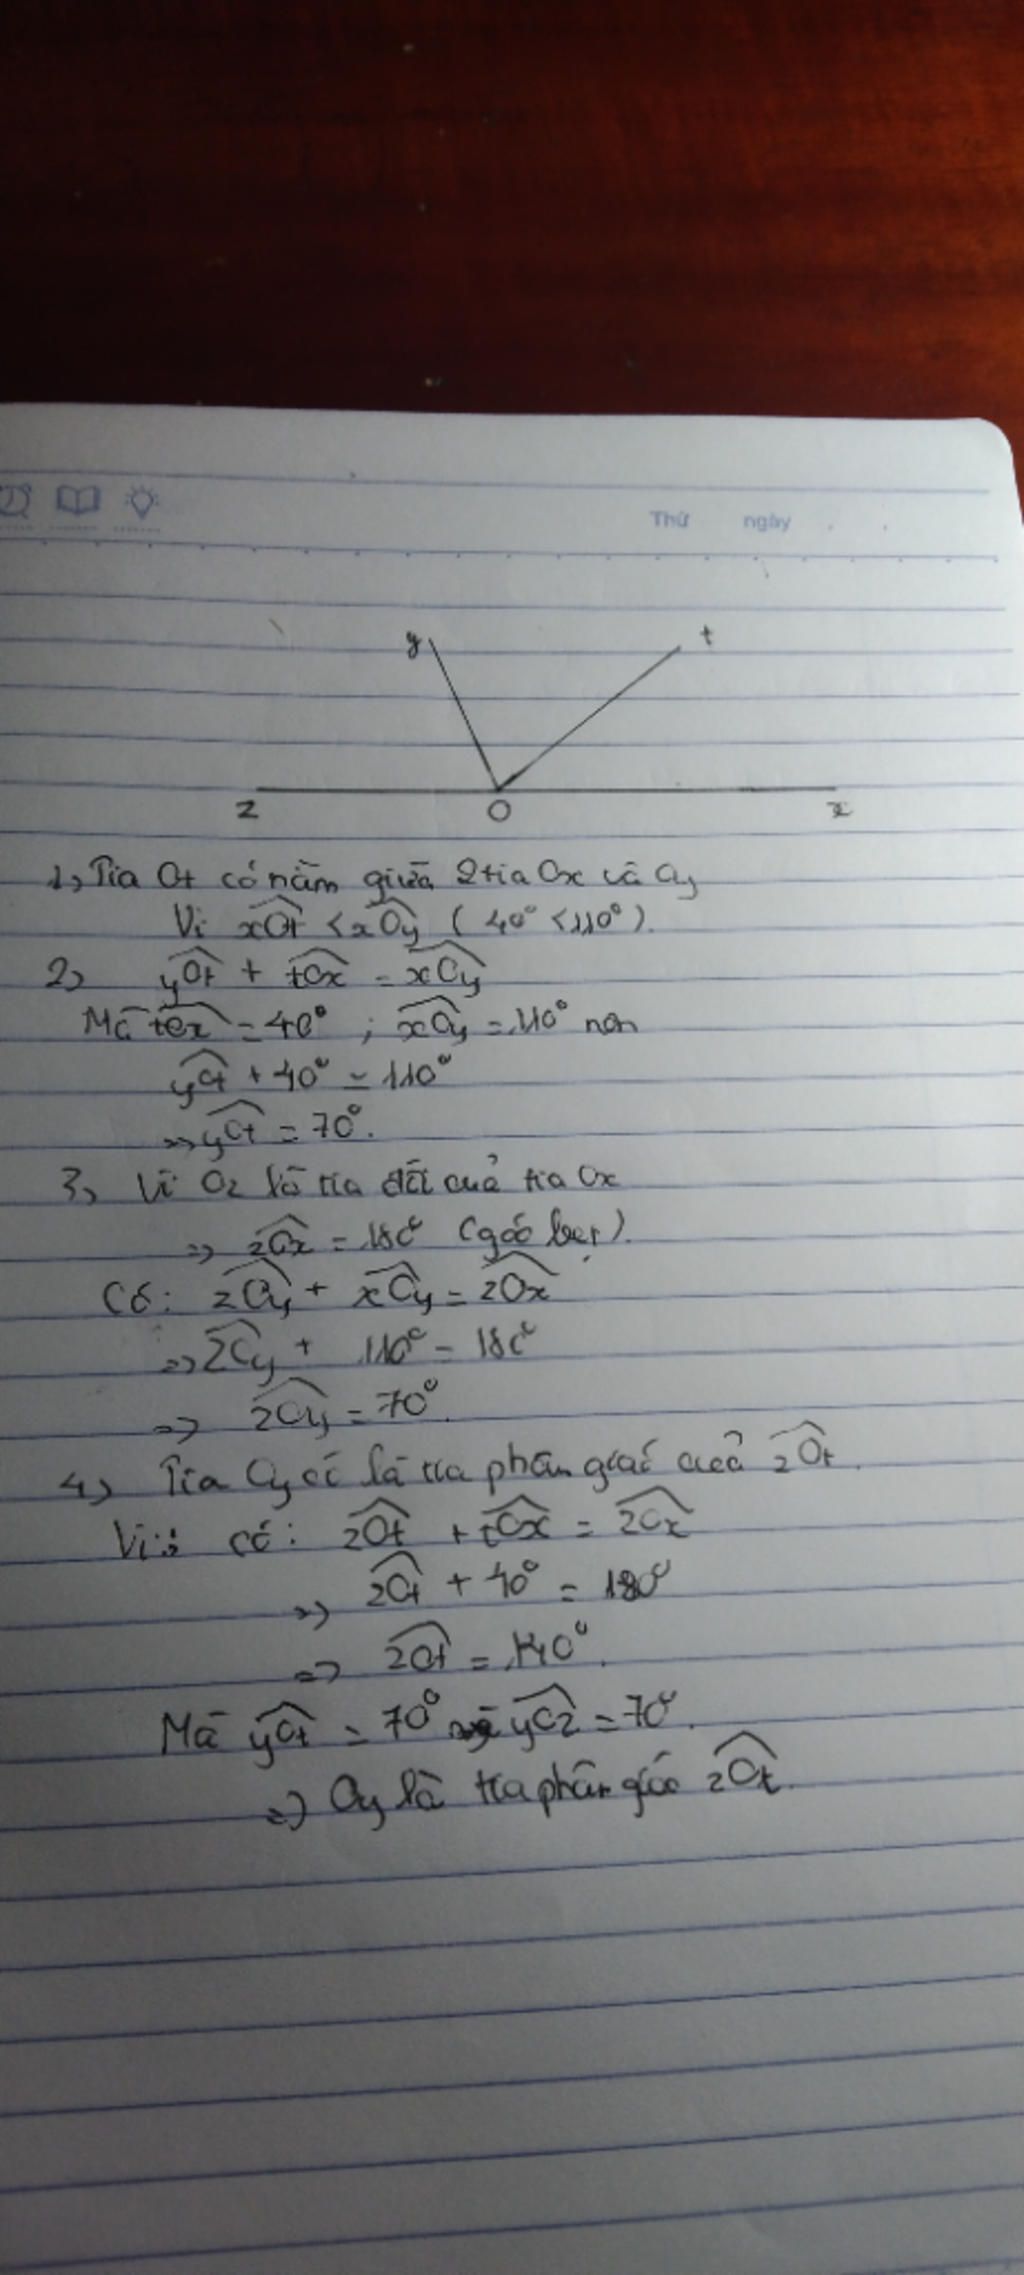 Thứ ngày
y t
z O x
1, Tia Ot có nằm giữa 2 tia Ox và Oy
Vì xOt < xOy ( 40° < 110° ).
2, yOt + tOx = xOy
Mà tOx = 40° ; xOy = 110° nên
yOt + 40° = 110°
=> yOt = 70°.
3, Vì Oz là tia đối của tia Ox
=> zOx = 180° (góc bẹt).
Có: zOy + xOy = zOx
=> zOy + 110° = 180°
=> zOy = 70°.
4, Tia Oy có là tia phân giác của zOt.
Vì: có: zOt + tOx = zOx
=> zOt + 40° = 180°
=> zOt = 140°.
Mà yOt = 70° và yOz = 70°.
=> Oy là tia phân giác zOt.